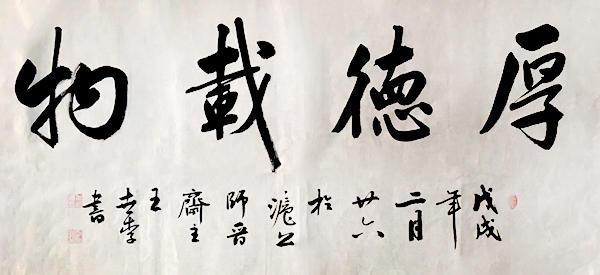 厚德載物
戊戌年二月廿六於滬上師晋齋主王書